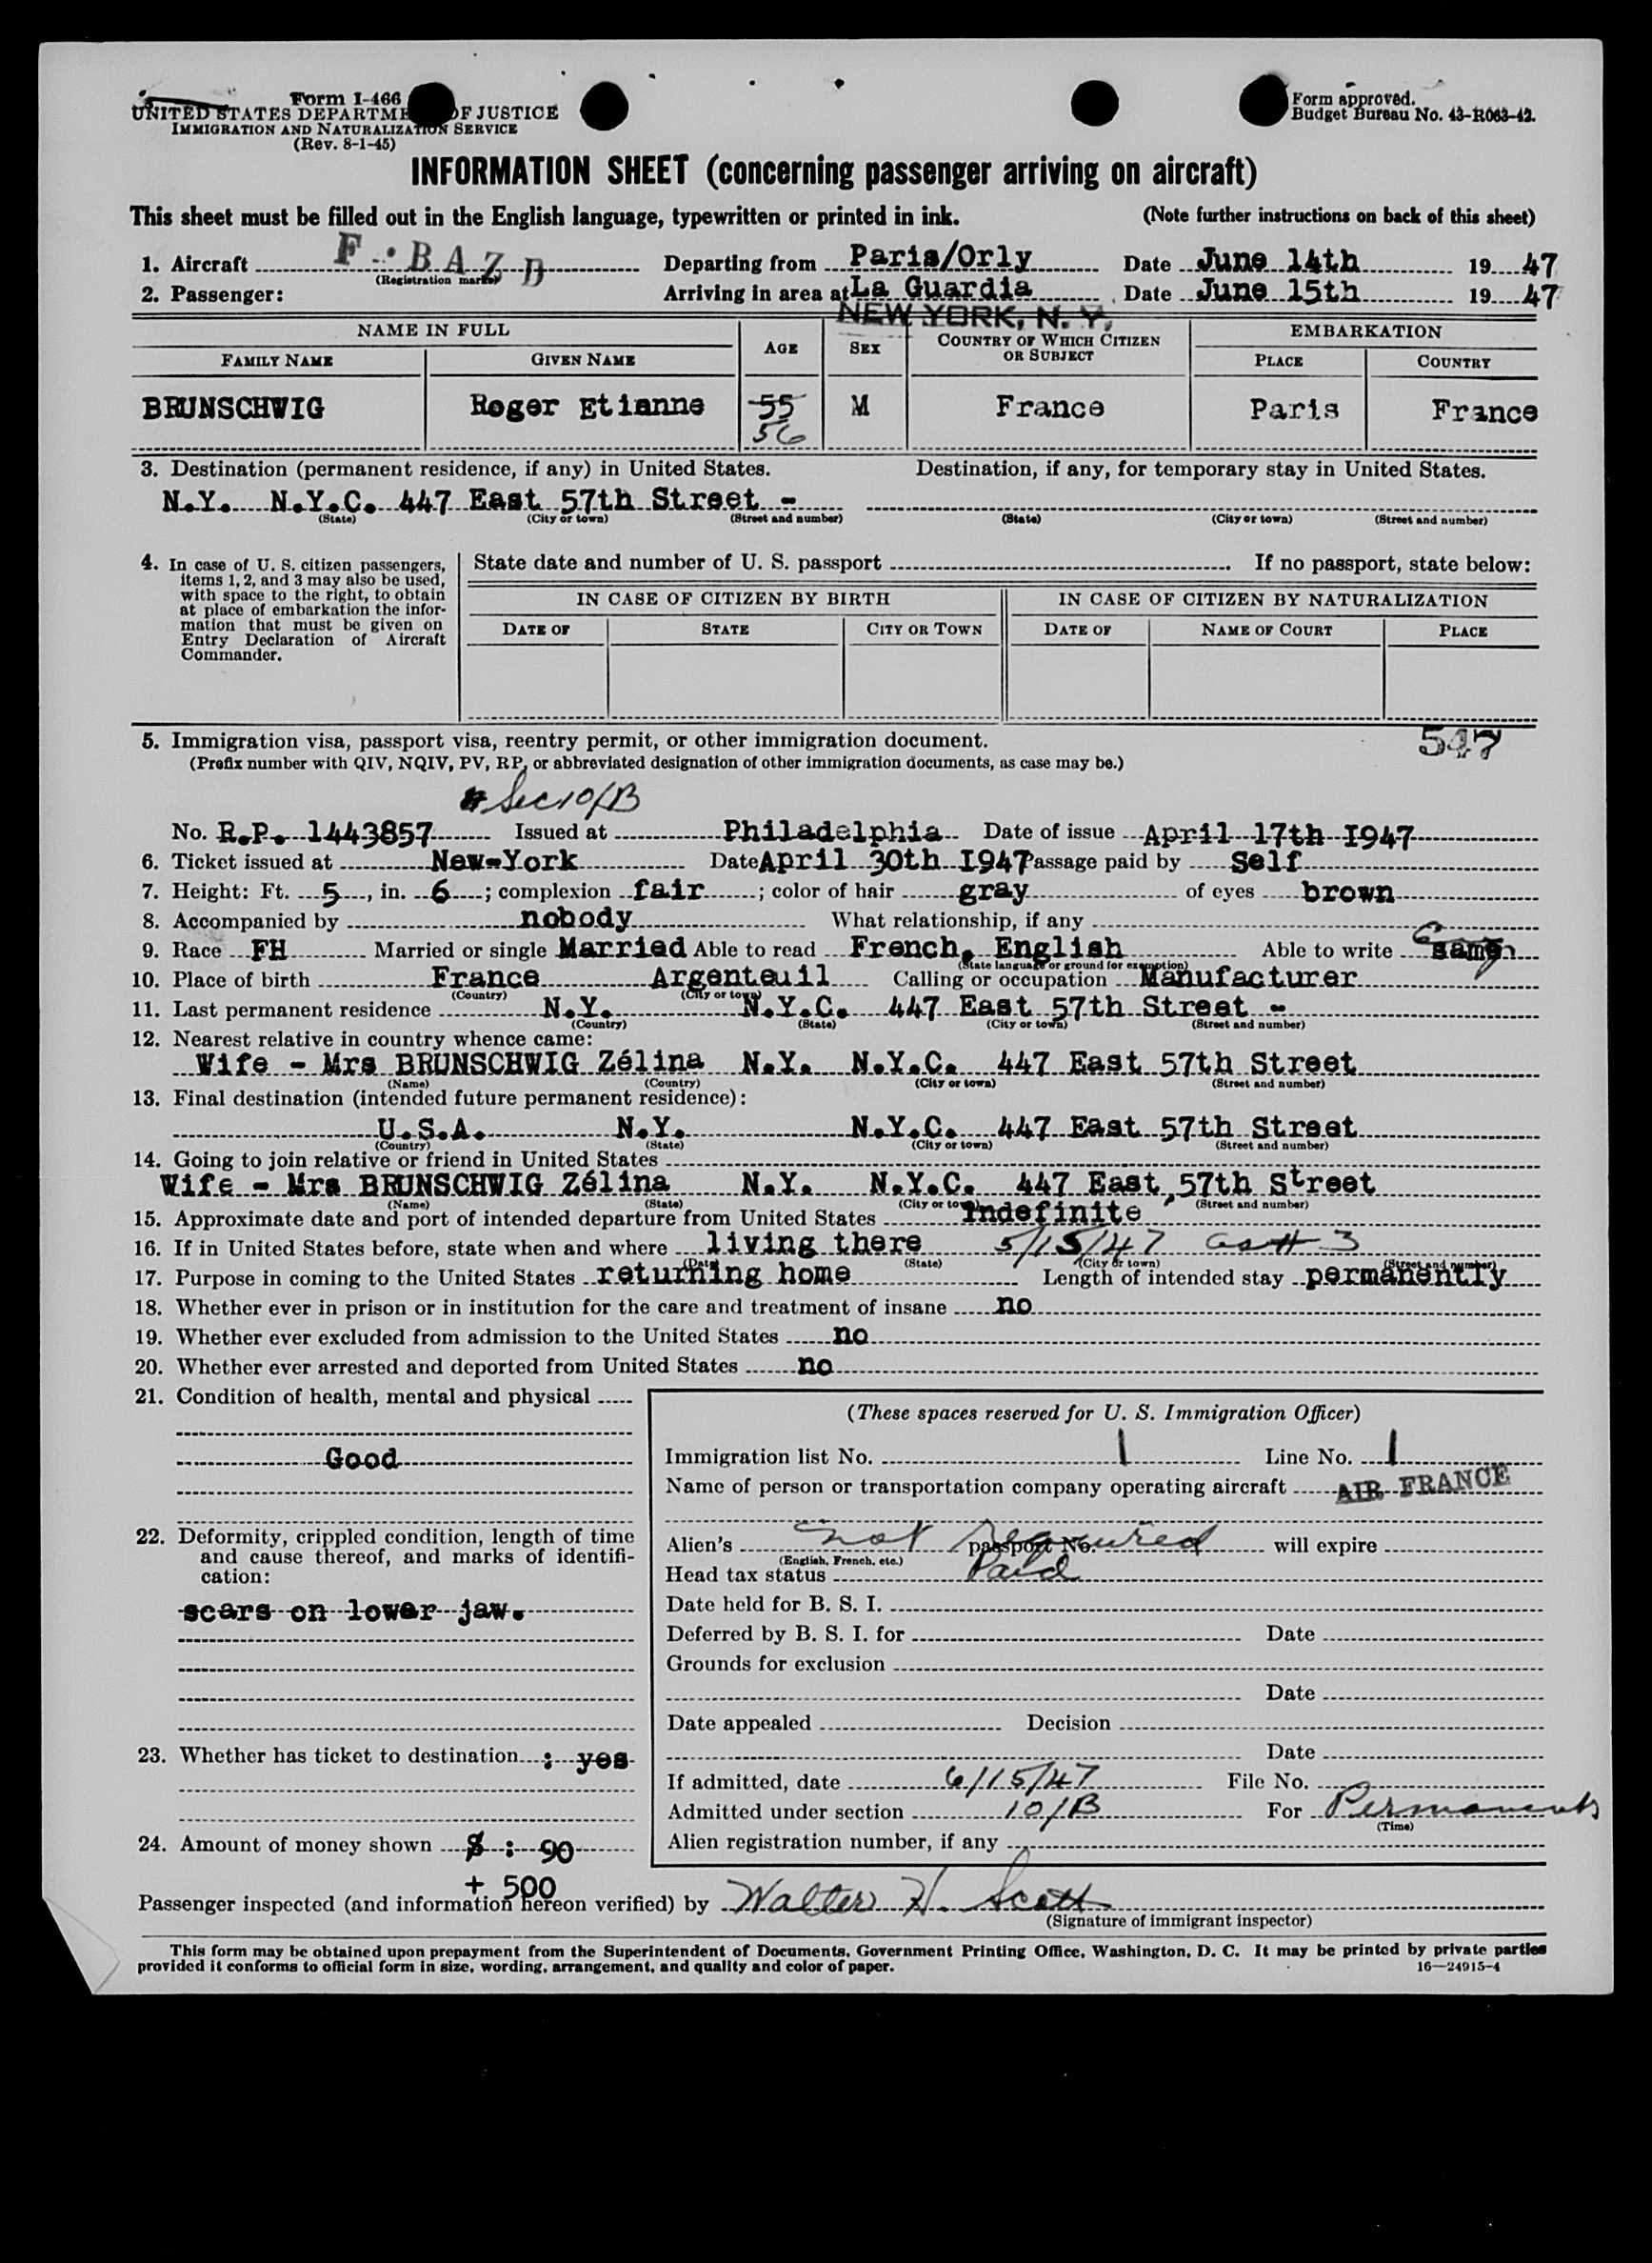 Form I-466
UNITED STATES DEPARTME OF JUSTICE
IMMIGRATION AND NATURALIZATION SERVICE
(Rev. 8-1-45)
Form approved.
Budget Bureau No. 43-R063-42.
INFORMATION SHEET (concerning passenger arriving on aircraft)
This sheet must be filled out in the English language, typewritten or printed in ink. (Note further instructions on back of this sheet)
1. Aircraft F-BAZD Departing from Paris/Orly Date June 14th 19 47
(Registration marks)
2. Passenger: Arriving in area at La Guardia Date June 15th 19 47
NEW YORK, N. Y.
NAME IN FULL AGE SEX COUNTRY OF WHICH CITIZEN OR SUBJECT EMBARKATION
FAMILY NAME GIVEN NAME PLACE COUNTRY
BRUNSCHWIG Roger Etianne 55 M France Paris France
56
3. Destination (permanent residence, if any) in United States. Destination, if any, for temporary stay in United States.
N.Y. N.Y.C. 447 East 57th Street -
(State) (City or town) (Street and number) (State) (City or town) (Street and number)
4. In case of U. S. citizen passengers, items 1, 2, and 3 may also be used, with space to the right, to obtain at place of embarkation the information that must be given on Entry Declaration of Aircraft Commander.
State date and number of U. S. passport If no passport, state below:
IN CASE OF CITIZEN BY BIRTH IN CASE OF CITIZEN BY NATURALIZATION
DATE OF STATE CITY OR TOWN DATE OF NAME OF COURT PLACE
5. Immigration visa, passport visa, reentry permit, or other immigration document. 547
(Prefix number with QIV, NQIV, PV, RP, or abbreviated designation of other immigration documents, as case may be.)
Sec 10/B
No. R.P. 1443857 Issued at Philadelphia Date of issue April 17th I947
6. Ticket issued at New-York Date April 30th I947 Passage paid by Self
7. Height: Ft. 5, in. 6; complexion fair; color of hair gray of eyes brown
8. Accompanied by nobody What relationship, if any
9. Race FH Married or single Married Able to read French, English Able to write same
(State language or ground for exemption)
10. Place of birth France Argenteuil Calling or occupation Manufacturer
(Country) (City or town)
11. Last permanent residence N.Y. N.Y.C. 447 East 57th Street -
(Country) (State) (City or town) (Street and number)
12. Nearest relative in country whence came:
Wife - Mrs BRUNSCHWIG Zélina N.Y. N.Y.C. 447 East 57th Street
(Name) (Country) (City or town) (Street and number)
13. Final destination (intended future permanent residence):
U.S.A. N.Y. N.Y.C. 447 East 57th Street
(Country) (State) (City or town) (Street and number)
14. Going to join relative or friend in United States
Wife - Mrs BRUNSCHWIG Zélina N.Y. N.Y.C. 447 East 57th Street
(Name) (State) (City or town) (Street and number)
15. Approximate date and port of intended departure from United States Indefinite
16. If in United States before, state when and where living there 5/15/47 as # 3
(Date) (State) (City or town) (Street and number)
17. Purpose in coming to the United States returning home Length of intended stay permanently
18. Whether ever in prison or in institution for the care and treatment of insane no
19. Whether ever excluded from admission to the United States no
20. Whether ever arrested and deported from United States no
21. Condition of health, mental and physical
Good
22. Deformity, crippled condition, length of time and cause thereof, and marks of identification:
scars on lower jaw.
23. Whether has ticket to destination : yes
24. Amount of money shown $ : 90
+ 500
(These spaces reserved for U. S. Immigration Officer)
Immigration list No. 1 Line No. 1
Name of person or transportation company operating aircraft AIR FRANCE
Alien's not required passport No. will expire
(English, French, etc.)
Head tax status Paid
Date held for B. S. I.
Deferred by B. S. I. for Date
Grounds for exclusion
Date
Date appealed Decision
Date
If admitted, date 6/15/47 File No.
Admitted under section 10/B For Permanent
(Time)
Alien registration number, if any
Passenger inspected (and information hereon verified) by Walter H. Scott
(Signature of immigrant inspector)
This form may be obtained upon prepayment from the Superintendent of Documents, Government Printing Office, Washington, D. C. It may be printed by private parties
provided it conforms to official form in size, wording, arrangement, and quality and color of paper. 16—24915-4